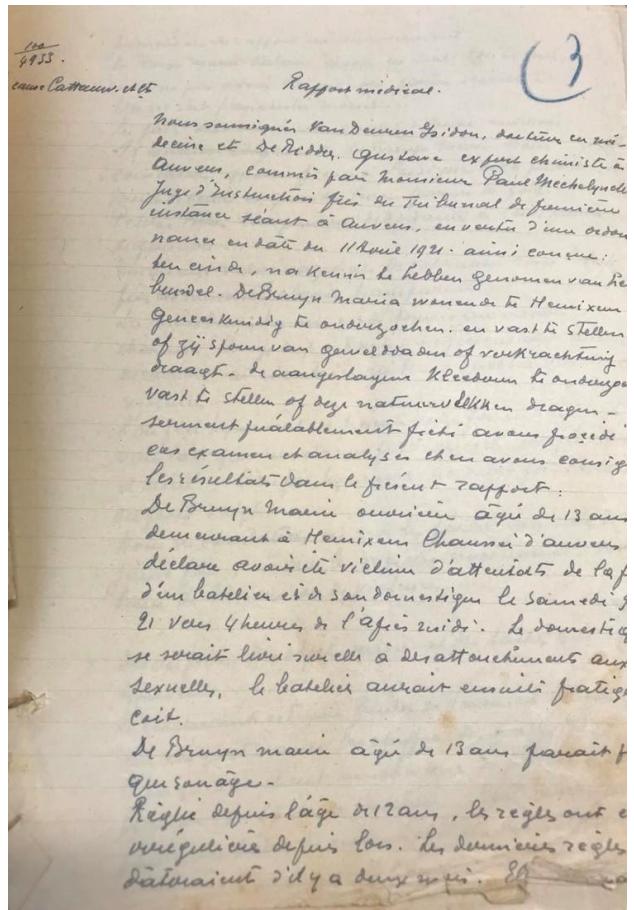 3
100
4933.
cause Cattauw. et cts
Rapport médical.
Nous soussignés Van Deuren Isidoor, docteur en mé-
decine et De Ridder Gustave expert chimiste à
Anvers, commis par Monsieur Paul Mechelynck
Juge d'Instruction près du Tribunal de première
instance séant à Anvers, en vertu d'une ordon
nance en date du 11 Avril 1921. ainsi conçue:
ten einde, na kennis te hebben genomen van he
bundel. De Bruyn Maria wonende te Hemixem
Geneeskundig te onderzoeken. en vast te stellen
of zij sporen van gewelddaden of verkrachting
draagt. de aangeslagene Kleederen te onderzoe
vast te stellen of deze natuurvlekken dragen.-
serment préalablement prêté avons procédé
ces examen et analyses et en avons consig
les résultats dans le présent rapport:
De Bruyn Marie ouvrière âgée de 13 ans
demeurant à Hemixem Chaussée d'anvers
déclare avoir été victime d'attentats de la p
d'un batelier et de son domestique le Samedi 9
21 vers 4 heures de l'après midi. Le domestiq
se serait livré sur elle à des attouchements aux
sexuelles, le batelier aurait ensuite pratiqu
coït.
De Bruyn marie âgée de 13 ans parait p
que son âge-
Réglée depuis l'âge de 12 ans, les règles ont é
irrégulières depuis lors. Les dernières règles
dataient d'il y a deux mois. E